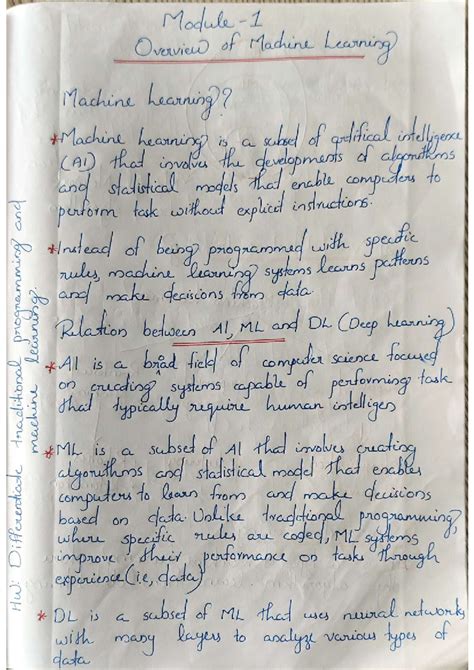 Module - 1
Overview of Machine Learning
Machine Learning?
* Machine Learning is a subset of artifical intelligence
(AI) that involves the developments of algorithms
and statistical models that enable computers to
perform task without explicit instructions.
* Instead of being programmed with specific
rules, machine learning systems learns patterns
and make decisions from data.
Relation between AI, ML and DL (Deep Learning)
* AI is a broad field of computer science focused
on creating systems capable of performing task
that typically require human intelligen
* ML is a subset of AI that involves creating
algorithms and statistical model that enables
computers to learn from and make decisions
based on data. Unlike traditional programming,
where specific rules are coded, ML systems
improve their performance on tasks through
experience (ie, data)
* DL is a subset of ML that uses neural networks
with many layers to analyze various types of
data
HW: Differentiate traditional programming and
machine learning.